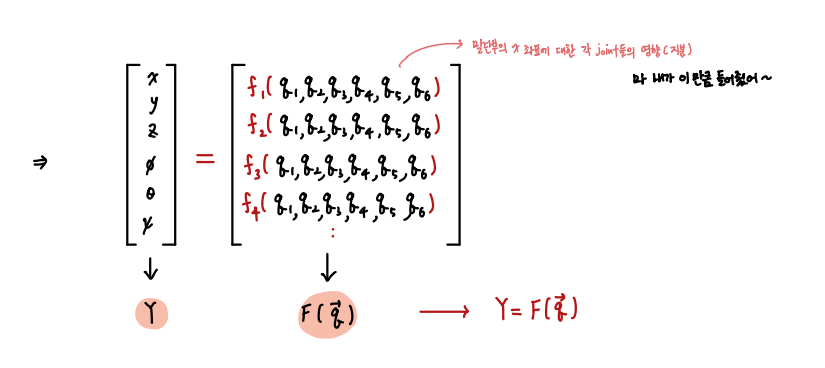 말단부의 x 좌표에 대한 각 joint들의 영향 (지분)
마 내가 이만큼 들어줬어 ~
⇒ [x y z ø θ ψ] = [f₁(q₁,q₂,q₃,q₄,q₅,q₆)
f₂(q₁,q₂,q₃,q₄,q₅,q₆)
f₃(q₁,q₂,q₃,q₄,q₅,q₆)
f₄(q₁,q₂,q₃,q₄,q₅,q₆)
⋮]
↓ ↓
Y F(q⃗) → Y = F(q⃗)